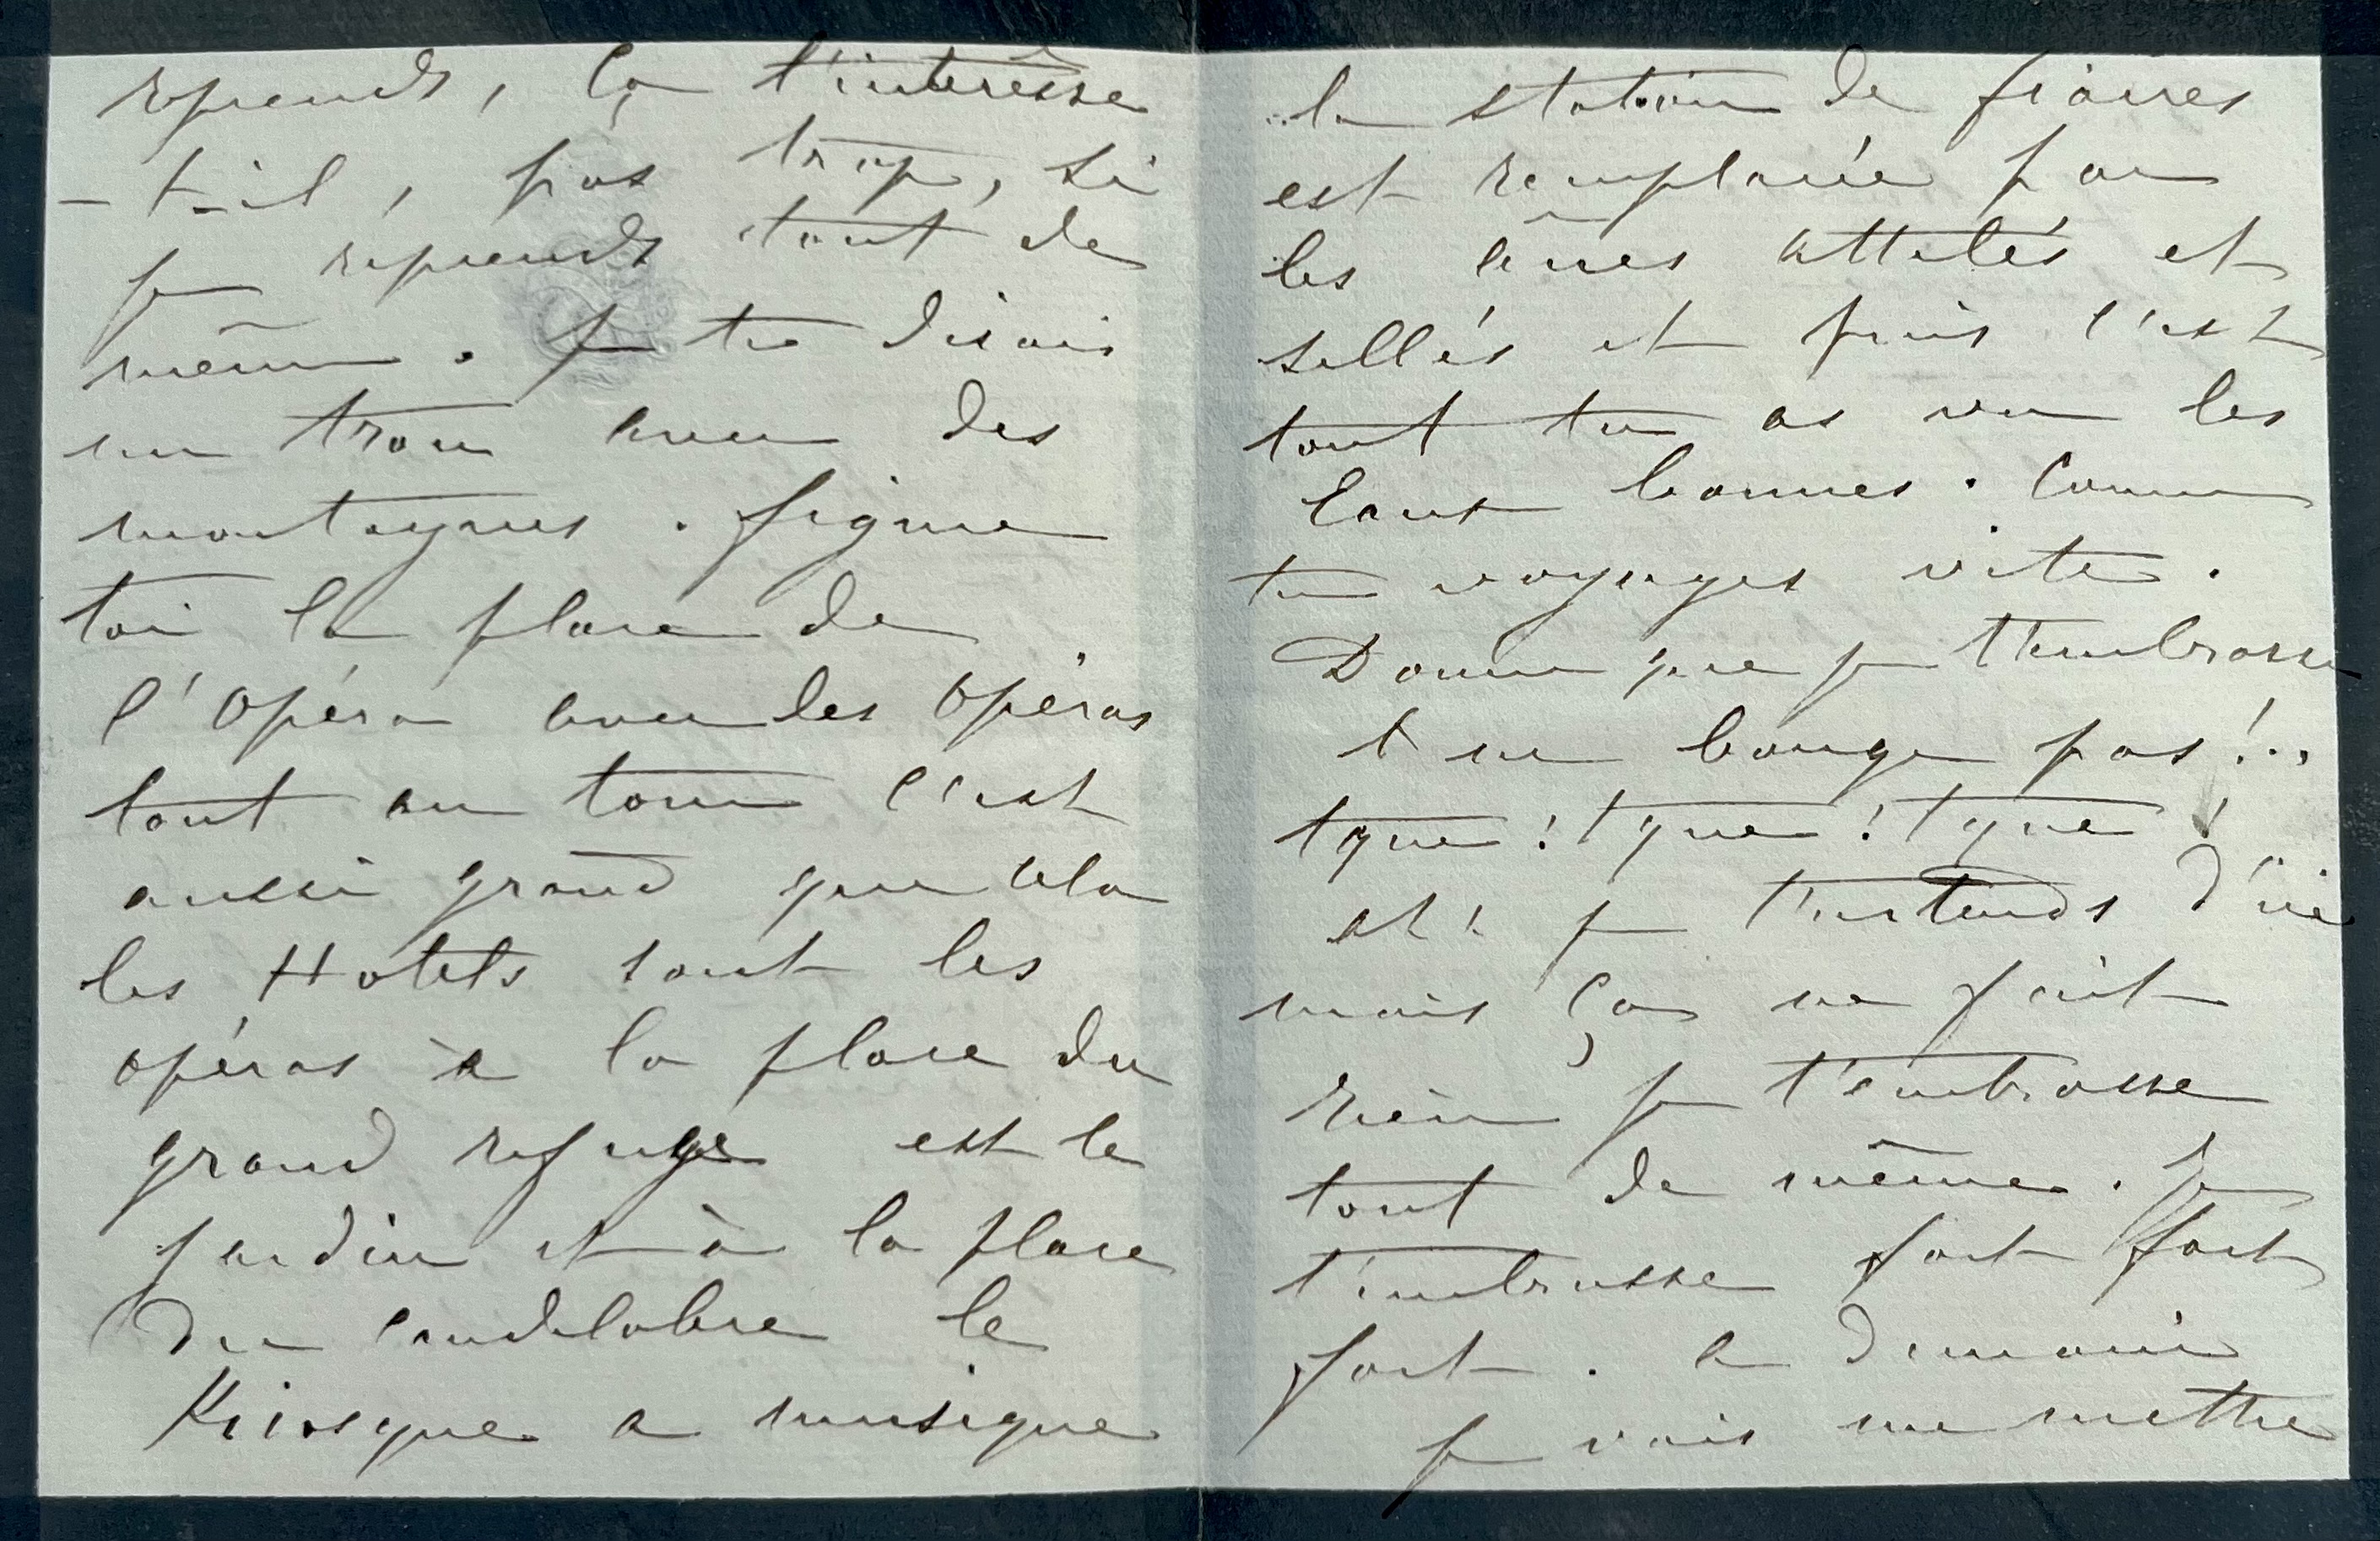 reprends, ça t'intéresse
- t-il, pas trop, si
je reprends tout de
même. Je te disais
un trou avec des
montagnes. figure
toi la place de
l'Opéra avec des Opéras
tout au tour c'est
aussi grand que cela
les Hotels sont les
opéras à la place du
grand refuge est le
jardin et à la place
du candelabre le
Kiosque a musique
la station de fiacres
est remplacée par
les ânes attelés et
sellés et puis c'est
tout tu as vu les
Eaux bonnes. Comme
tu voyages vite.
Donne que je t'embrasse
ne bouge pas!..
tque! tque! tque!
je t'entends d'ici
mais ça ne fait
rien je t'embrasse
tout de même. Je
t'embrasse fort fort
fort. a demain
je vais me mettre